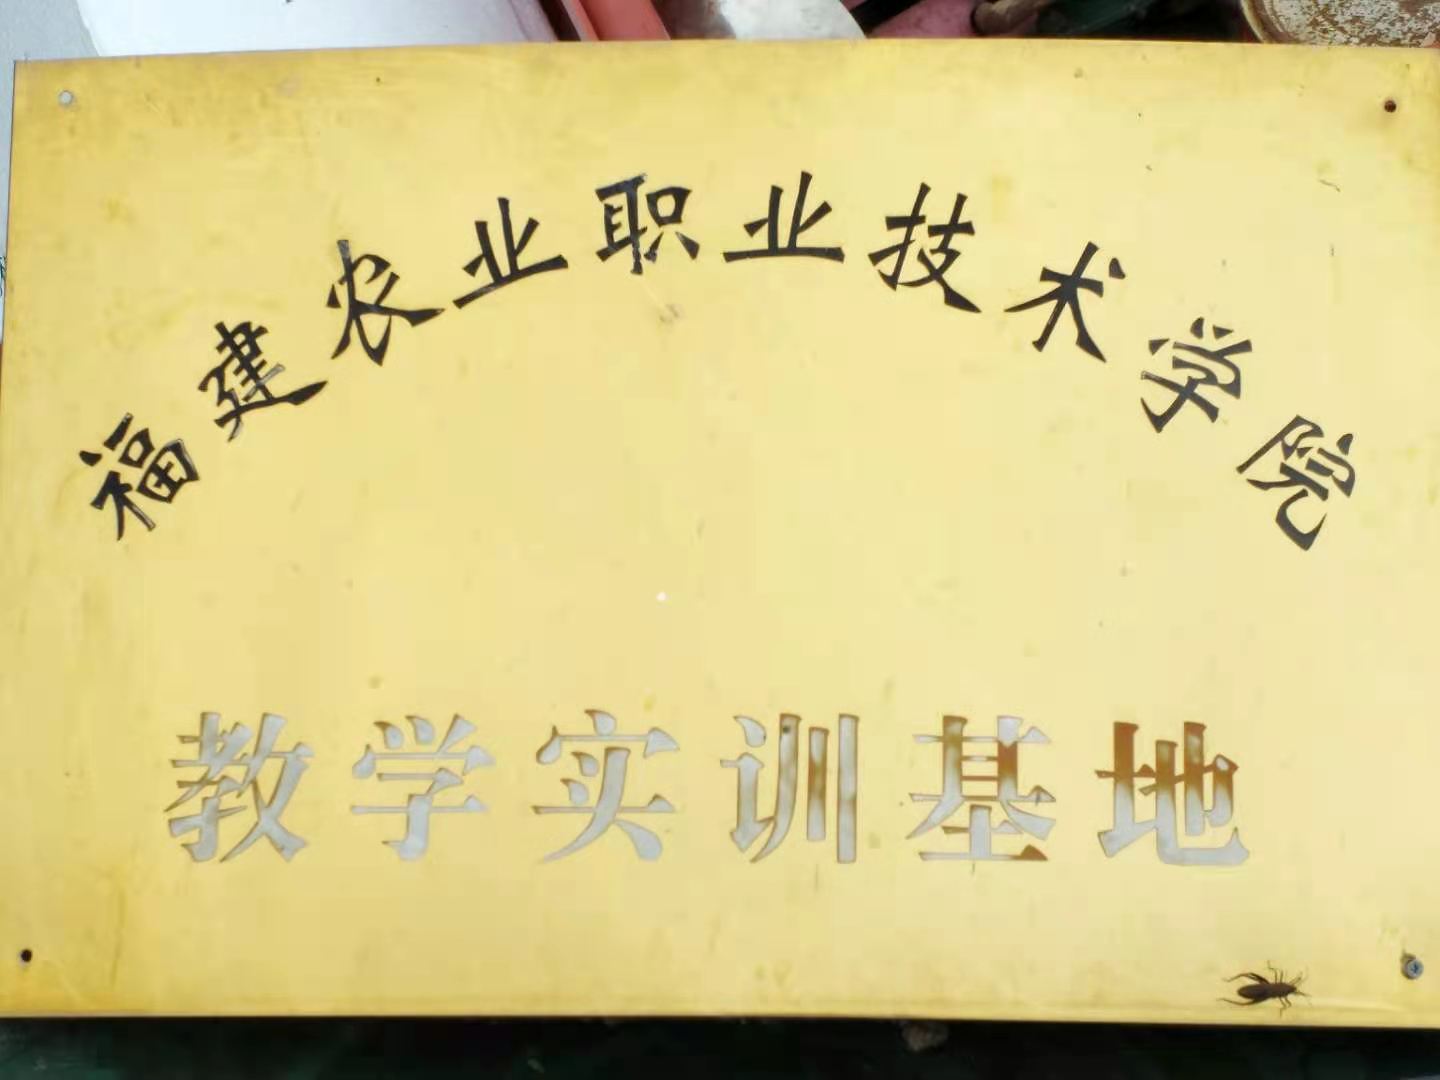 福建农业职业技术学院
教学实训基地